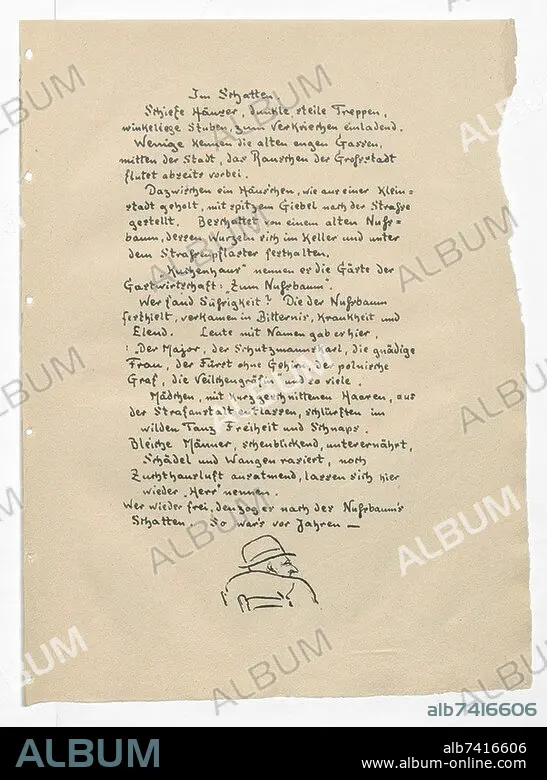 Im Schatten.
Schiefe Häuser, dunkle steile Treppen,
winkeliege Stuben, zum Verkriechen einladend.
Wenige kennen die alten engen Gassen,
mitten der Stadt, das Rauschen der Grofsstadt
flutet abseits vorbei.
Dazwischen ein Häuschen, wie aus einer Klein=
stadt geholt, mit spitzem Giebel nach der Strafse
gestellt. Beschattet von einem alten Nufs=
baum, dessen Wurzeln sich im Keller und unter
dem Strafsenpflaster festhalten.
"Kuchenhaus" nennen es die Gäste der
Gastwirtschaft: "Zum Nufsbaum".
Wer fand Süfsigkeit? Die der Nufsbaum
festhielt, verkamen in Bitternis, Krankheit und
Elend. Leute mit Namen gab es hier,
: "Der Major, der Schutzmannskarl, die gnädige
Frau, der Fürst ohne Gehirn, der polnische
Graf, die Veilchengräfin und so viele.
Mädchen, mit kurzgeschnittenen Haaren, aus
der Strafanstalt entlassen, schlürften im
wilden Tanz Freiheit und Schnaps.
Bleiche Männer, scheublickend, unterernährt,
Schädel und Wangen rasiert, noch
Zuchthausluft ausatmend, lassen sich hier
wieder "Herr" nennen.
Wer wieder frei, den zog es nach des Nufsbaum's
Schatten. So war's vor Jahren —
ALBUM
alb7416606
ALBUM
alb7416606
www.album-online.com